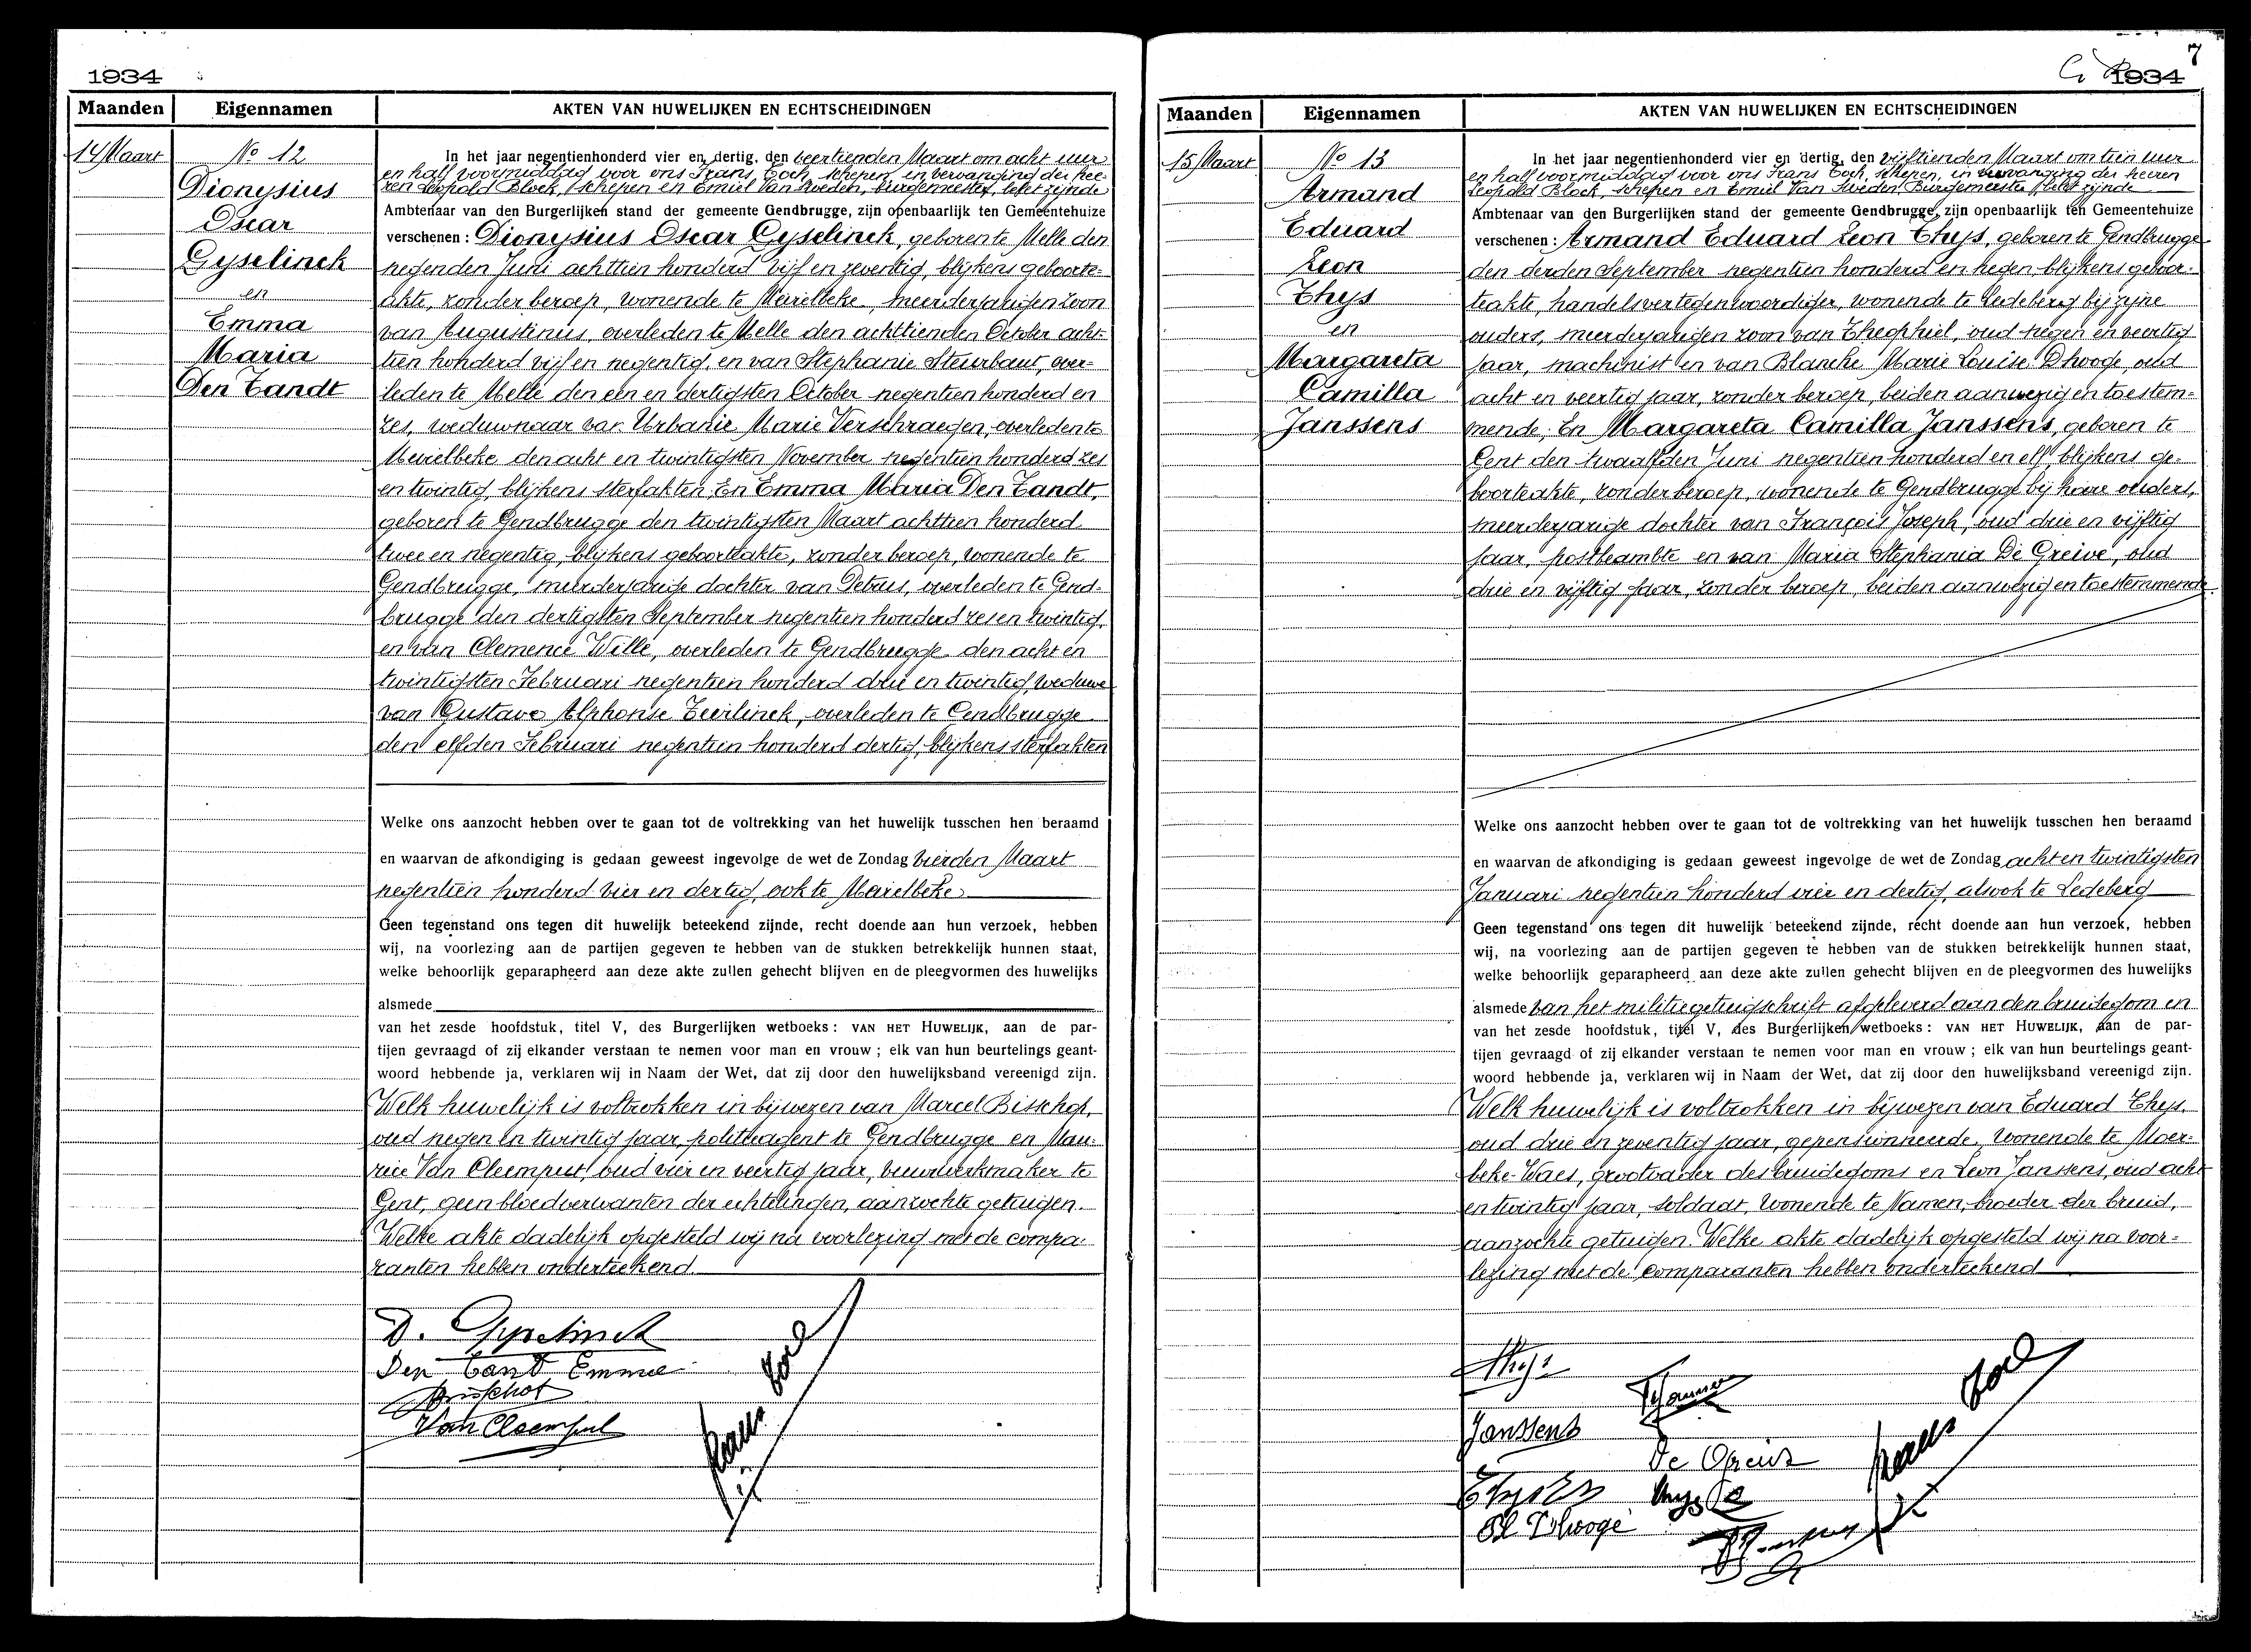 1934
Maanden Eigennamen AKTEN VAN HUWELIJKEN EN ECHTSCHEIDINGEN
14 Maart
No 12
Dionysius
Oscar
Gyselinck
en
Emma
Maria
Den Tandt
In het jaar negentienhonderd vier en dertig, den veertienden Maart om acht uur
en half voormiddag voor ons Frans Toch, schepen, in vervanging der hee-
ren Leopold Block, schepen en Emiel Van Sweden, burgemeester, belet zijnde
Ambtenaar van den Burgerlijken stand der gemeente Gendbrugge, zijn openbaarlijk ten Gemeentehuize
verschenen : Dionysius Oscar Gyselinck, geboren te Melle den
negenden Juni achttien honderd vijf en zeventig, blijkens geboorte-
akte, zonder beroep, wonende te Meirelbeke, meerderjarigen zoon
van Augustinus, overleden te Melle den achttienden October acht-
tien honderd vijf en negentig, en van Stephanie Steurbaut, over-
leden te Melle den een en dertigsten October negentien honderd en
zes, weduwnaar van Urbanie Marie Verschraegen, overleden te
Meirelbeke den acht en twintigsten November negentien honderd zes
en twintig, blijkens sterfakten; En Emma Maria Den Tandt,
geboren te Gendbrugge den twintigsten Maart achttien honderd
twee en negentig, blijkens geboorteakte, zonder beroep, wonende te
Gendbrugge, meerderjarige dochter van Petrus, overleden te Gend-
brugge den dertigsten September negentien honderd zes en twintig,
en van Clemence Wille, overleden te Gendbrugge den acht en
twintigsten Februari negentien honderd drie en twintig, weduwe
van Gustave Alphonse Teirlinck, overleden te Gendbrugge
den elfden Februari negentien honderd dertig, blijkens sterfakten
Welke ons aanzocht hebben over te gaan tot de voltrekking van het huwelijk tusschen hen beraamd
en waarvan de afkondiging is gedaan geweest ingevolge de wet de Zondag vierden Maart
negentien honderd vier en dertig, ook te Meirelbeke
Geen tegenstand ons tegen dit huwelijk beteekend zijnde, recht doende aan hun verzoek, hebben
wij, na voorlezing aan de partijen gegeven te hebben van de stukken betrekkelijk hunnen staat,
welke behoorlijk geparapheerd aan deze akte zullen gehecht blijven en de pleegvormen des huwelijks
alsmede
van het zesde hoofdstuk, titel V, des Burgerlijken wetboeks : VAN HET HUWELIJK, aan de par-
tijen gevraagd of zij elkander verstaan te nemen voor man en vrouw ; elk van hun beurtelings geant-
woord hebbende ja, verklaren wij in Naam der Wet, dat zij door den huwelijksband vereenigd zijn.
Welk huwelijk is voltrokken in bijwezen van Marcel Bisschop,
oud negen en twintig jaar, politieagent te Gendbrugge en Mau-
rice Van Cleemput, oud vier en veertig jaar, vuurwerkmaker te
Gent, geen bloedverwanten der echtelingen, aanzochte getuigen.
Welke akte dadelijk opgesteld wij na voorlezing met de compa-
ranten hebben onderteekend
D. Gyselinck
Den Tandt Emma
Bisschop
Van Cleemput
Frans Toch
7
1934
Maanden Eigennamen AKTEN VAN HUWELIJKEN EN ECHTSCHEIDINGEN
15 Maart
No 13
Armand
Eduard
Leon
Thys
en
Margareta
Camilla
Janssens
In het jaar negentienhonderd vier en dertig, den vijftienden Maart om tien uur
en half voormiddag voor ons Frans Toch, schepen, in vervanging der heeren
Leopold Block, schepen en Emiel Van Sweden, Burgemeester, belet zijnde
Ambtenaar van den Burgerlijken stand der gemeente Gendbrugge, zijn openbaarlijk ten Gemeentehuize
verschenen : Armand Eduard Leon Thys, geboren te Gendbrugge
den derden September negentien honderd en negen, blijkens geboor-
teakte, handelsvertegenwoordiger, wonende te Ledeberg bij zijne
ouders, meerderjarigen zoon van Theophiel, oud negen en veertig
jaar, machinist en van Blanche Marie Louise Dhooge, oud
acht en veertig jaar, zonder beroep, beiden aanwezig en toestem-
mende; En Margareta Camilla Janssens, geboren te
Gent den twaalfden Juni negentien honderd en elf, blijkens ge-
boorteakte, zonder beroep, wonende te Gendbrugge bij hare ouders,
meerderjarige dochter van François Joseph, oud drie en vijftig
jaar, postbeambte en van Maria Stephania De Greive, oud
drie en vijftig jaar, zonder beroep, beiden aanwezig en toestemmende
Welke ons aanzocht hebben over te gaan tot de voltrekking van het huwelijk tusschen hen beraamd
en waarvan de afkondiging is gedaan geweest ingevolge de wet de Zondag acht en twintigsten
Januari negentien honderd vier en dertig, alsook te Ledeberg
Geen tegenstand ons tegen dit huwelijk beteekend zijnde, recht doende aan hun verzoek, hebben
wij, na voorlezing aan de partijen gegeven te hebben van de stukken betrekkelijk hunnen staat,
welke behoorlijk geparapheerd aan deze akte zullen gehecht blijven en de pleegvormen des huwelijks
alsmede van het militiegetuigschrift afgeleverd aan den bruidegom en
van het zesde hoofdstuk, titel V, des Burgerlijken wetboeks : VAN HET HUWELIJK, aan de par-
tijen gevraagd of zij elkander verstaan te nemen voor man en vrouw ; elk van hun beurtelings geant-
woord hebbende ja, verklaren wij in Naam der Wet, dat zij door den huwelijksband vereenigd zijn.
Welk huwelijk is voltrokken in bijwezen van Eduard Thys,
oud drie en zeventig jaar, gepensionneerde, wonende te Moer-
beke-Waes, grootvader des bruidegoms en Leon Janssens, oud acht
en twintig jaar, soldaat, wonende te Namen, broeder der bruid,
aanzochte getuigen. Welke akte dadelijk opgesteld wij na voor-
lezing met de comparanten hebben onderteekend
Thys
Janssens
De Greive
Bl Dhooge
Frans Toch